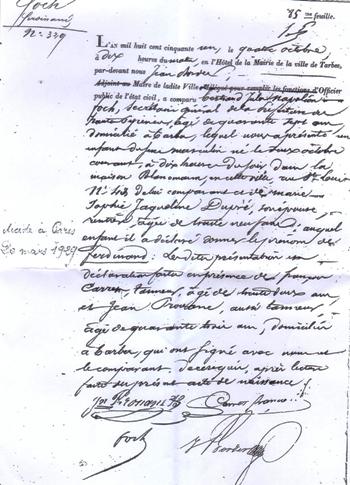 Foch
Ferdinand
N° 349
85 me feuille.
L'AN mil huit cent cinquante un, le quatre octobre
à dix heures du matin, en l'Hôtel de la Mairie de la ville de Tarbes,
par-devant nous
Adjoint au Maire de ladite Ville délégué pour remplir les fonctions d'Officier
public de l'état civil, a comparu Bertrand Jules Napoléon
Foch, Secrétaire Général de la Préfecture des
Hautes Pyrénées, âgé de quarante sept ans
domicilié à Tarbes, lequel nous a présenté un
enfant du sexe masculin né le deux octobre
courant, à dix heures du soir dans la
maison en cette ville, rue St Louis
N° de lui comparant et de Marie
Sophie Jaqueline Dupré, son épouse,
rentière, âgée de trente neuf ans; auquel
enfant il a déclaré donner le prénom de
Ferdinand. Les dites présentation et
déclaration faites en présence de françois
Carrère, tanneur, âgé de trente deux ans
et Jean Prouane, aussi tanneur,
âgé de quarante trois ans, domiciliés
à Tarbes, qui ont signé avec nous et
le comparant, de ce requis, après lecture
faite du présent acte de naissance.
Foch
à Paris
20 mars 1929